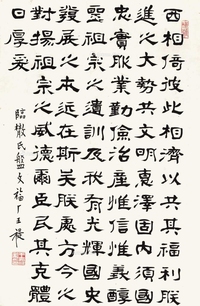 西相倚彼此相濟以共其福利朕
進之大勢共文明惠澤固內須國
忠實服業勤儉治產惟信惟義醇
祖宗之遺訓及我有光輝國史
發展之本近在斯矣朕處方今之
對揚祖宗之威德爾臣民其克體
日厚爰
臨散氏盤文 福厂王禔